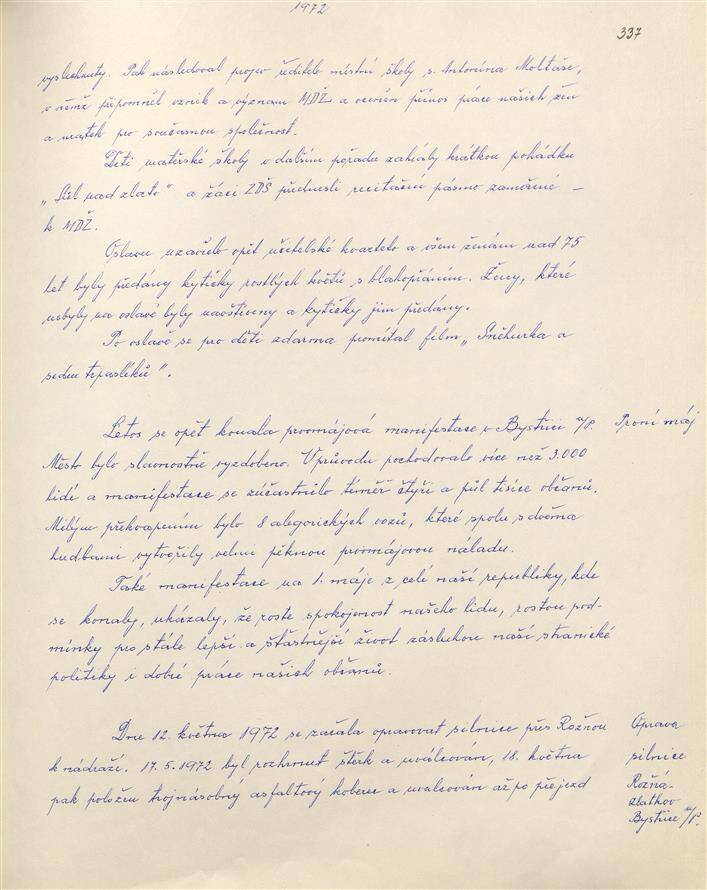 1972
337
vyslechnuty. Pak následoval projev ředitele místní školy s. Antonína Moltáše,
v němž připomněl vznik a význam MDŽ a ocenění přínos práce našich žen
a matek pro současnou společnost.
Děti mateřské školy v dalším pořadu zahrály krátkou pohádku
„Sůl nad zlato" a žáci ZDŠ přednesli recitační pásmo zaměřené –
k MDŽ.
Oslavu uzavřelo opět učitelské kvarteto a všem ženám nad 75
let byly předány kytičky rostlých květů s blahopřáním. Ženy, které
nebyly na oslavě byly navštíveny a kytičky jim předány.
Po oslavě se pro děti zdarma promítal film „Sněhurka a
sedm trpaslíků".
Letos se opět konala prvomájová manifestace v Bystřici n/P.
První máj
Město bylo slavnostně vyzdobeno. V průvodu pochodovalo více než 3.000
lidí a manifestace se zúčastnilo téměř čtyři a půl tisíce občanů.
Milým překvapením bylo 8 alegorických vozů, které spolu s dvěma
hudbami vytvořily velmi pěknou prvomájovou náladu.
Také manifestace na 1. máje z celé naší republiky, kde
se konaly, ukázaly, že roste spokojenost našeho lidu, rostou pod-
mínky pro stále lepší a šťastnější život zásluhou naší stranické
politiky i dobré práce našich občanů.
Dne 12. května 1972 se začala opravovat silnice přes Rožnou
k nádraží. 17.5.1972 byl rozhrnut štěrk a uválcován, 18. května
pak položen trojnásobný asfaltový koberec a uválcován až po přejezd
Oprava
silnice
Rožná-
zlatkov
Bystřice n/P.